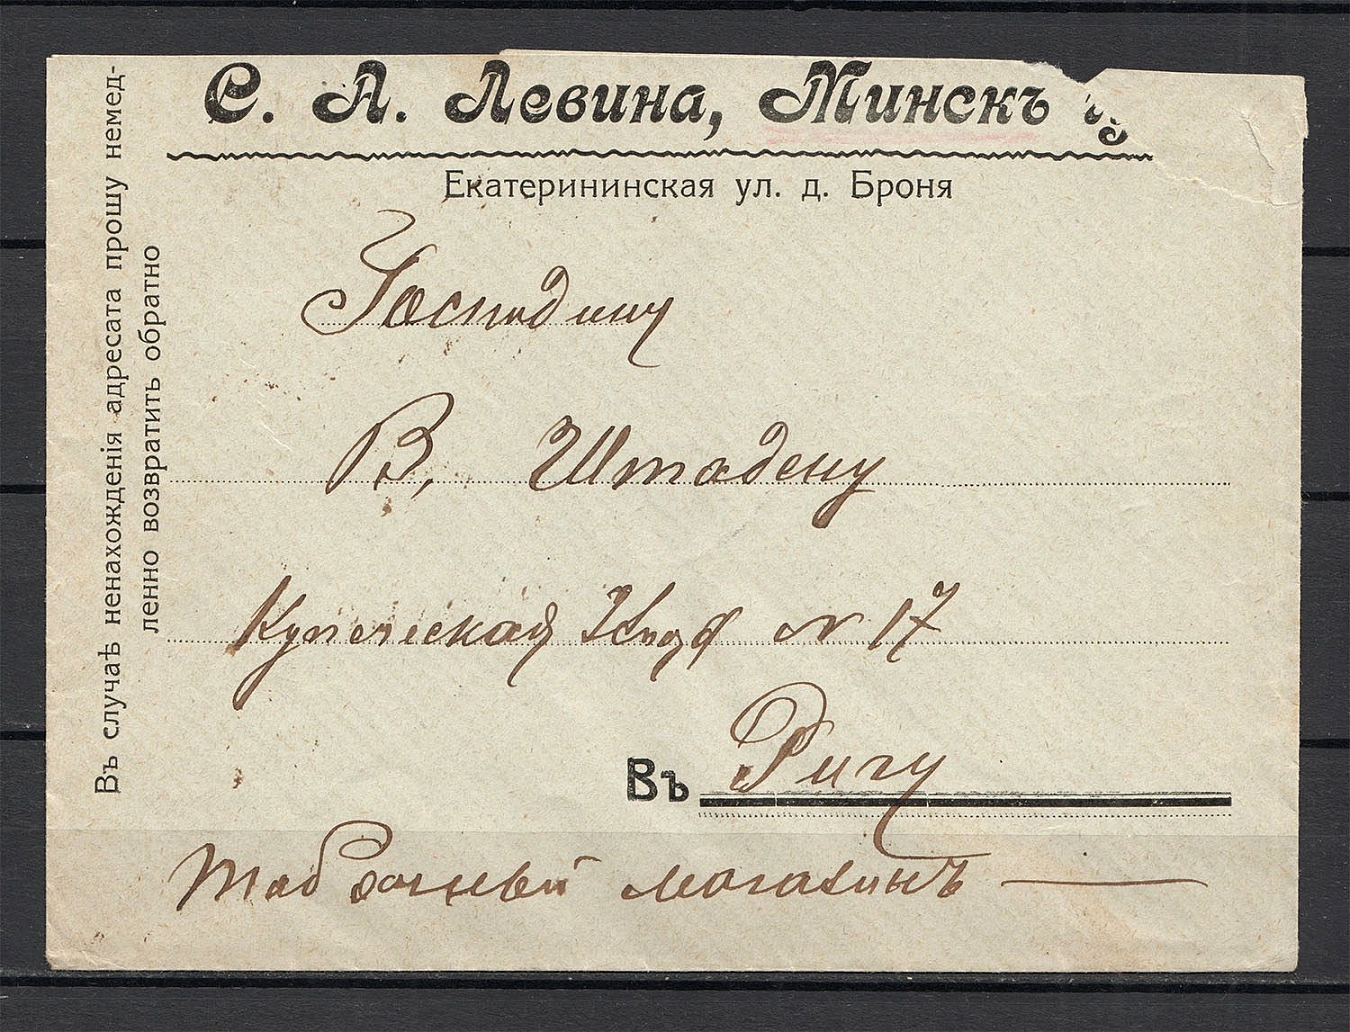 С. А. Левина, Минскъ
Екатерининская ул. д. Броня
Въ случаѣ ненахожденія адресата прошу немед-
ленно возвратить обратно
Господину
В, Штадену
Купеческая № 17
Въ Ригу
Табачный магазинъ